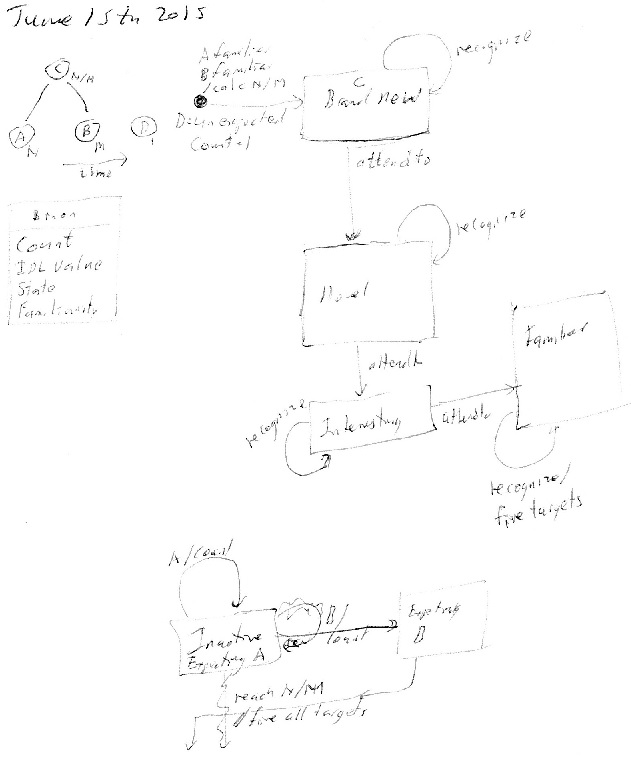 June 15th 2015
C N/M
A N
B M
D 1
time
A familiar
B familiar
/calc N/M
D=Unexpected
Count=1
C
Brand new
recognize
attend to
Count
IDL Value
State
Familiarity
Novel
recognize
attend to
Interesting
recognize
attend to
Familiar
recognize/
fire targets
A/Count
Inactive
Expecting A
B/
Count
Expecting
B
reach N/M
/fire all targets